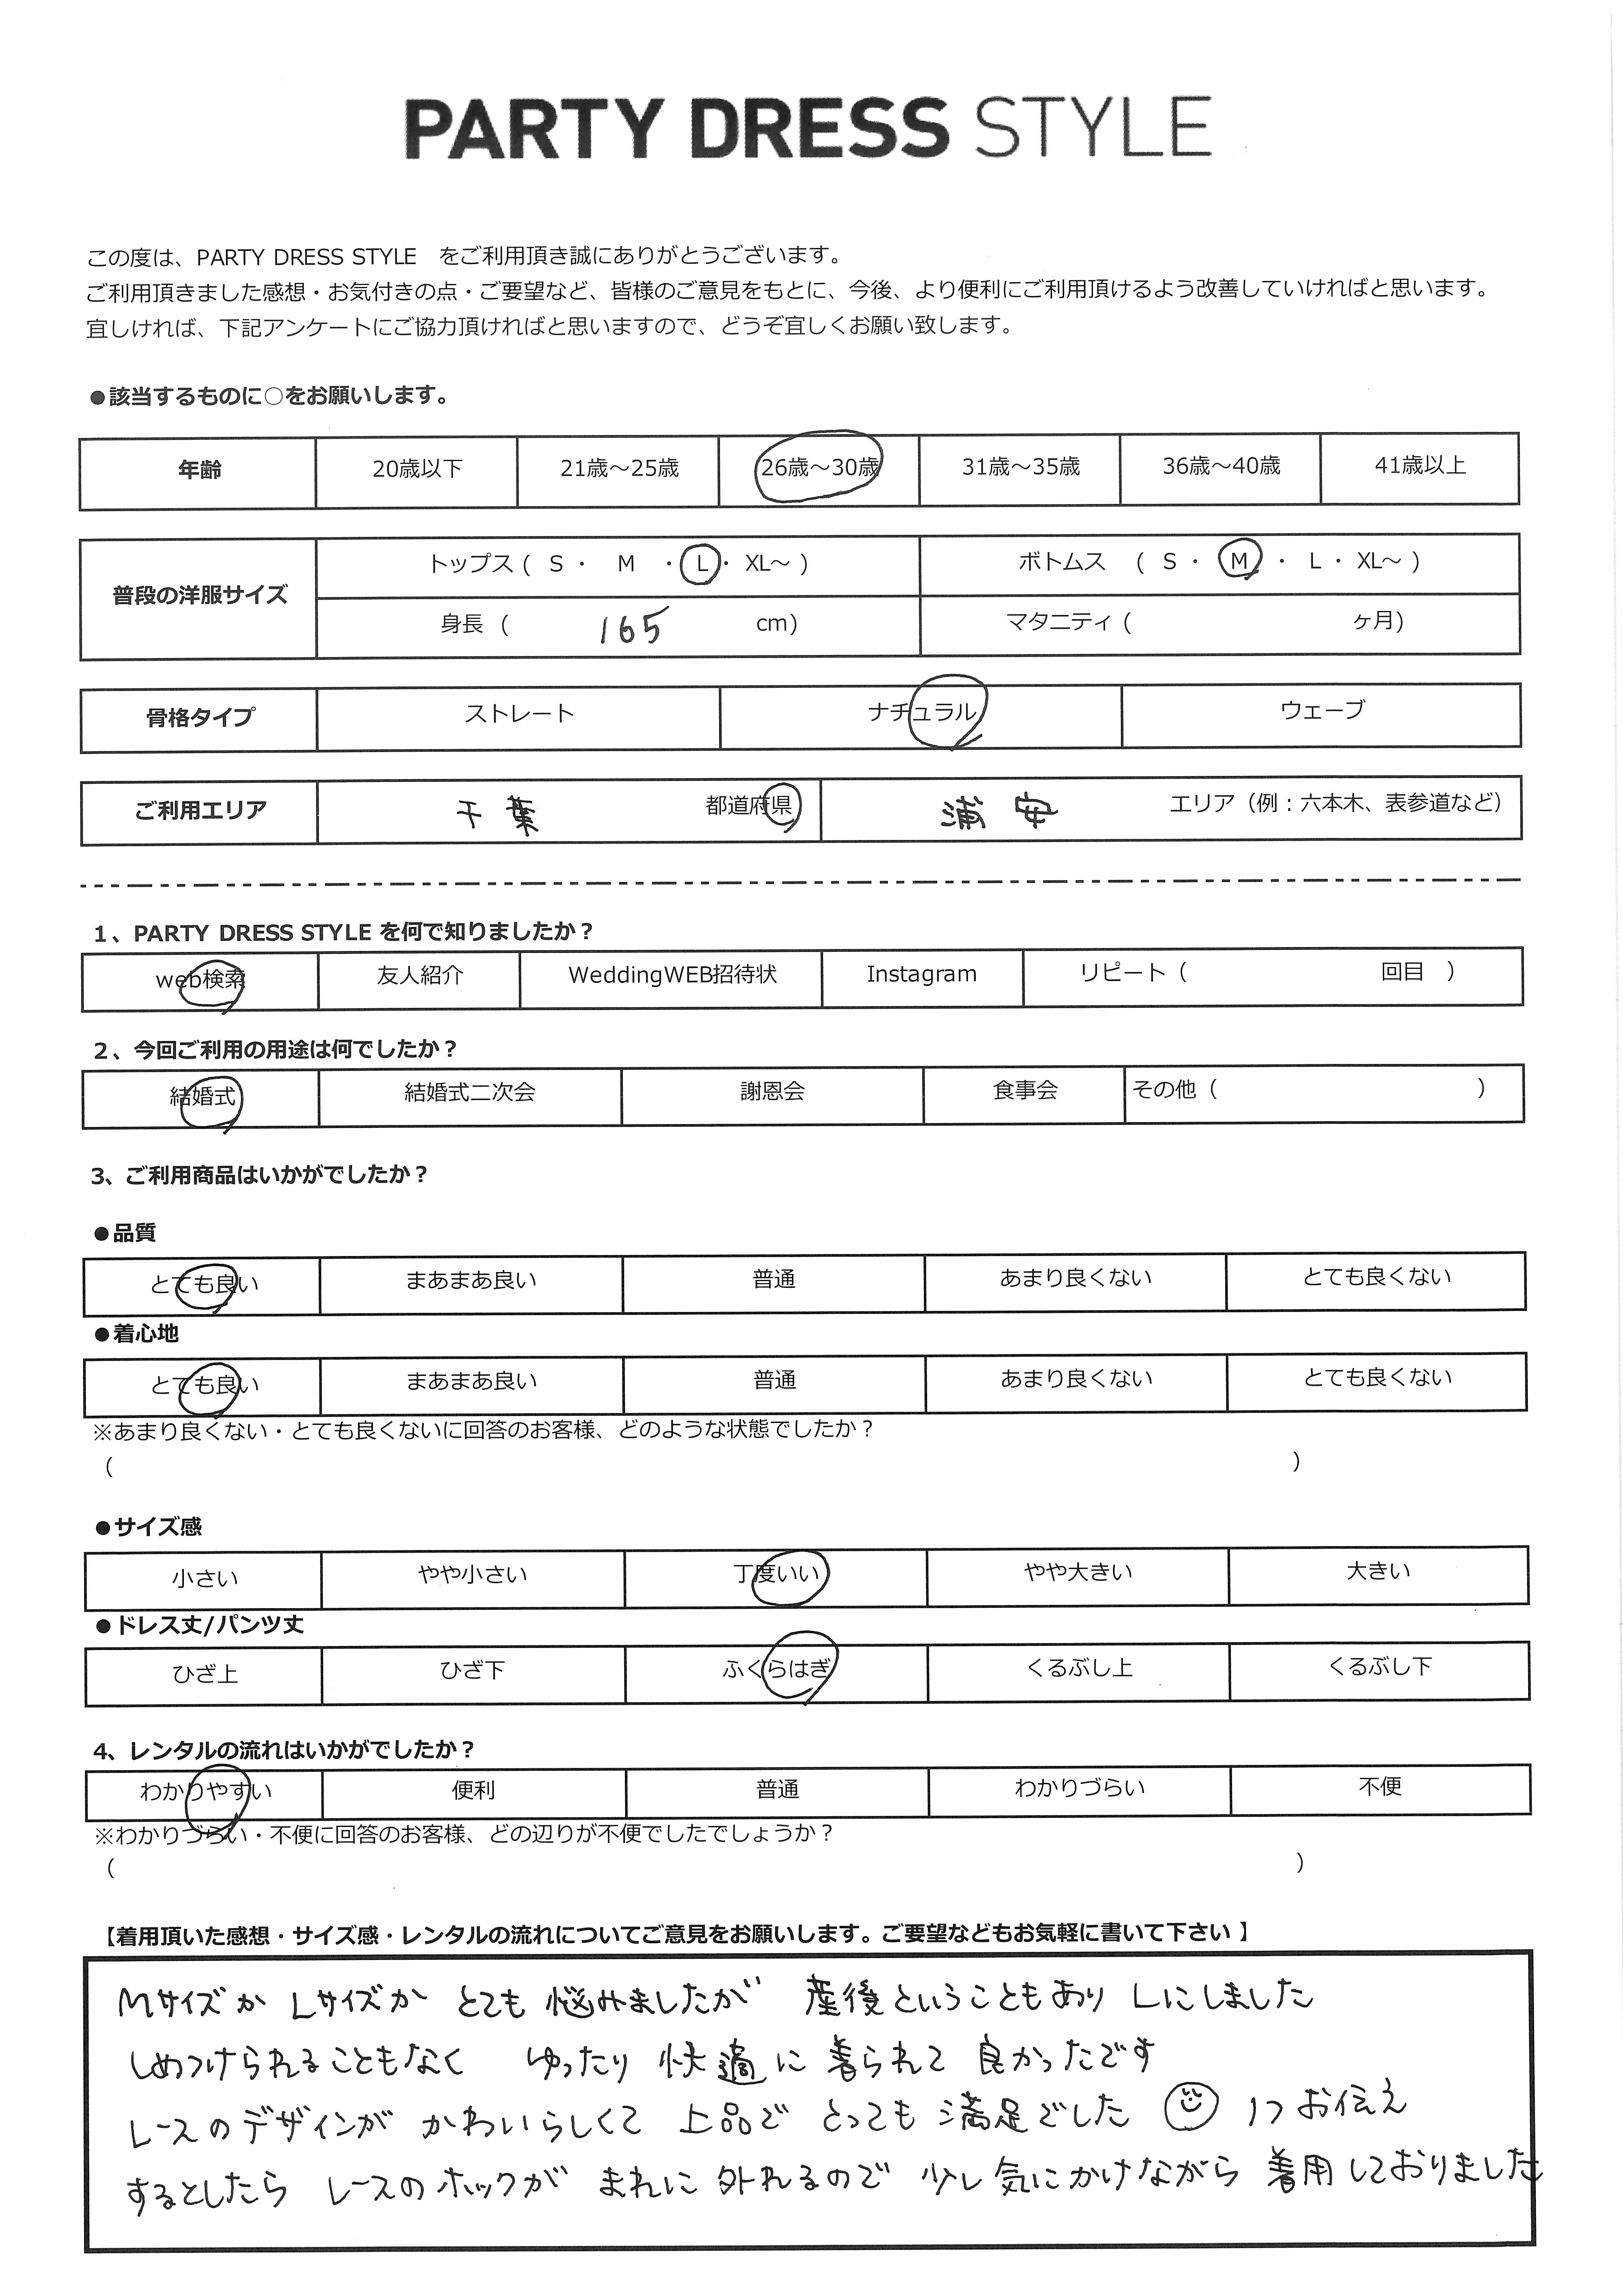 PARTY DRESS STYLE
この度は、PARTY DRESS STYLE　をご利用頂き誠にありがとうございます。
ご利用頂きました感想・お気付きの点・ご要望など、皆様のご意見をもとに、今後、より便利にご利用頂けるよう改善していければと思います。
宜しければ、下記アンケートにご協力頂ければと思いますので、どうぞ宜しくお願い致します。
●該当するものに○をお願いします。
年齢 20歳以下 21歳～25歳 26歳～30歳 31歳～35歳 36歳～40歳 41歳以上
普段の洋服サイズ トップス ( S ・ M ・ L ・ XL～ ) ボトムス ( S ・ M ・ L ・ XL～ )
身長 ( 165 cm) マタニティ ( ヶ月)
骨格タイプ ストレート ナチュラル ウェーブ
ご利用エリア 千葉 都道府県 浦安 エリア（例：六本木、表参道など）
1、PARTY DRESS STYLE を何で知りましたか？
web検索 友人紹介 WeddingWEB招待状 Instagram リピート（ 回目 ）
2、今回ご利用の用途は何でしたか？
結婚式 結婚式二次会 謝恩会 食事会 その他（ ）
3、ご利用商品はいかがでしたか？
●品質
とても良い まあまあ良い 普通 あまり良くない とても良くない
●着心地
とても良い まあまあ良い 普通 あまり良くない とても良くない
※あまり良くない・とても良くないに回答のお客様、どのような状態でしたか？
（ ）
●サイズ感
小さい やや小さい 丁度いい やや大きい 大きい
●ドレス丈/パンツ丈
ひざ上 ひざ下 ふくらはぎ くるぶし上 くるぶし下
4、レンタルの流れはいかがでしたか？
わかりやすい 便利 普通 わかりづらい 不便
※わかりづらい・不便に回答のお客様、どの辺りが不便でしたでしょうか？
（ ）
【着用頂いた感想・サイズ感・レンタルの流れについてご意見をお願いします。ご要望などもお気軽に書いて下さい 】
Mサイズか Lサイズか とても 悩みましたが 産後ということもあり Lにしました
しめつけられることもなく ゆったり 快適に 着られて 良かったです
レースのデザインが かわいらしくて 上品で とっても 満足でした 1つお伝え
するとしたら レースのホックが まれに 外れるので 少し気にかけながら 着用しておりました